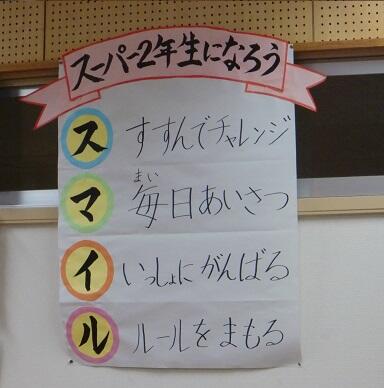 スーパー2年生になろう
ス すすんでチャレンジ
まい
マ 毎日あいさつ
イ いっしょにがんばる
ル ルールをまもる